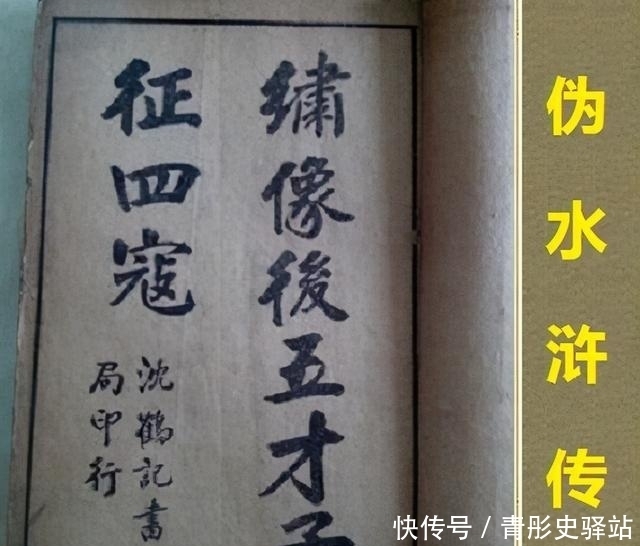 繡像後五才子
征四寇
沈鶴記書
局印行
伪水浒传
快传号 / 青彤史驿站